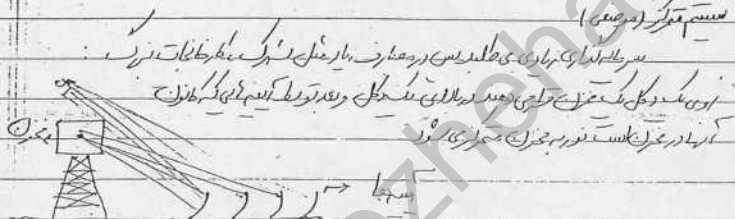 سیستم متمرکز (موضعی)
سرمایه گذاری زیادی می طلبد پس در مصارف زیاد مثل شهرک ، کارخانجات بزرگ :
روی یک دکل یک مخزن قرار می دهند در بالای یک دکل و بعد توسط آیینه هایی که کانون
آنها در مخزن است نور به مخزن متمرکز می شود
مخزن
آیینه ها
ozheha